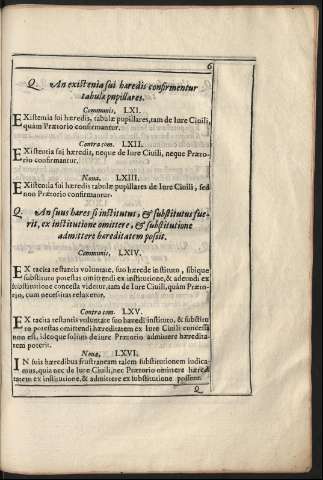 6
Q. An existentia sui hæredis confirmentur
tabulæ pupillares.
Communis, LXI.
EXistentia sui hæredis, tabulæ pupillares, tam de Iure Ciuili,
quàm Prætorio confirmantur.
Contra com. LXII.
EXistentia sui hæredis, neque de Iure Ciuili, neque Præto-
rio confirmantur.
Noua. LXIII.
EXistentia sui hæredis tabulæ pupillares de Iure Ciuili, sed
non Prætorio confirmantur.
Q. An suus hæres si institutus, & substitutus fue-
rit, ex institutione omittere, & substitutione
admittere hæreditatem possit.
Communis, LXIV.
EX tacita testantis voluntate, suo hærede instituto, sibique
substituto potestas omittendi ex institutione, & adeundi ex
substitutione concessa videtur, tam de Iure Ciuili, quàm Præto-
rio, cum necessitas relaxetur.
Contra com. LXV.
EX tacita testantis voluntate suo hæredi instituto, & substitu-
to potestas omittendi hæreditatem ex Iure Ciuili concessa
non est, ideoque solùm de iure Prætorio admittere hæredita-
tem poterit.
Noua, LXVI.
IN suis hæredibus frustraneam talem substitutionem iudica-
mus, quia nec de Iure Ciuili, nec Prætorio omittere hæredi
tatem ex institutione, & admittere ex substitutione possunt.
Q